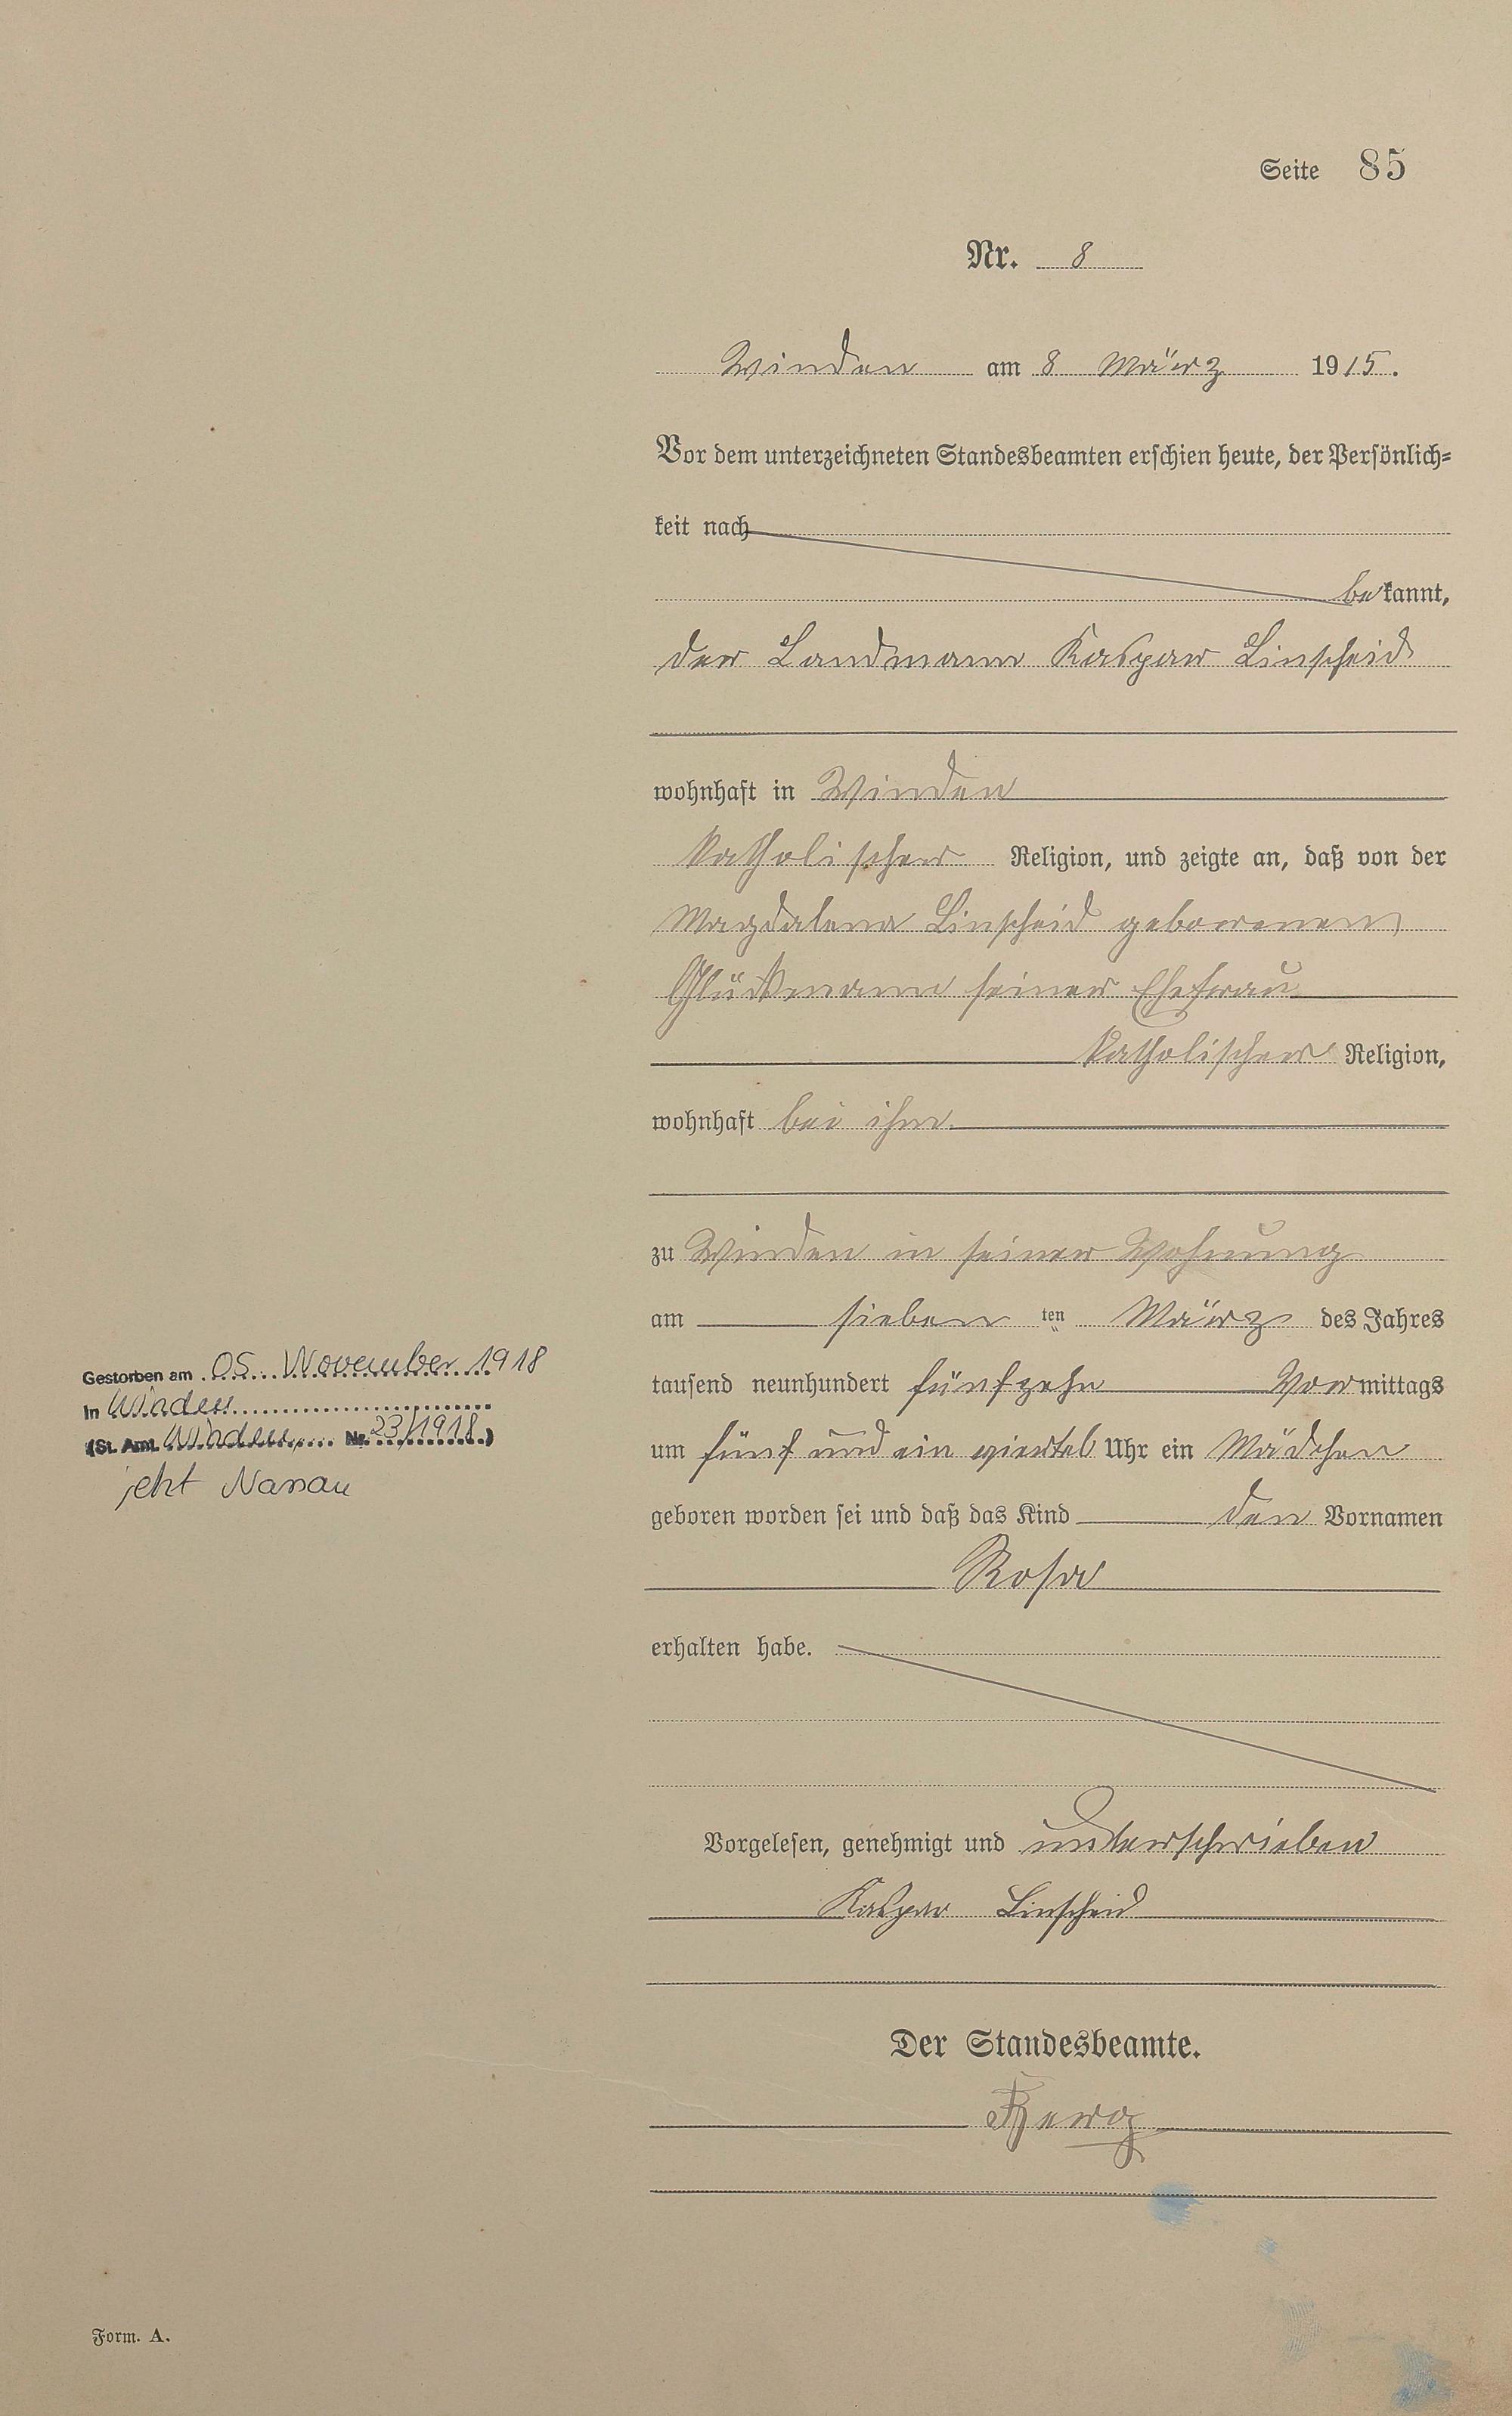 Seite 85
Nr. 8
Winden am 8 März 1915.
Vor dem unterzeichneten Standesbeamten erschien heute, der Persönlich=
keit nach
bekannt,
der Landmann Kaspar Linscheid
wohnhaft in Winden
katholischer Religion, und zeigte an, daß von der
Magdalena Linscheid geborenen
Glückmann seiner Ehefrau
katholischer Religion,
wohnhaft bei ihm
zu Winden in seiner Wohnung
am sieben ten März des Jahres
tausend neunhundert fünfzehn Vormittags
um fünf und ein viertel Uhr ein Mädchen
geboren worden sei und daß das Kind den Vornamen
Rosa
erhalten habe.
Vorgelesen, genehmigt und unterschrieben
Kaspar Linscheid
Der Standesbeamte.
Gestorben am 05. November 1918
in Winden
(St. Amt. Winden Nr. 23/1918)
jetzt Nassau
Form. A.